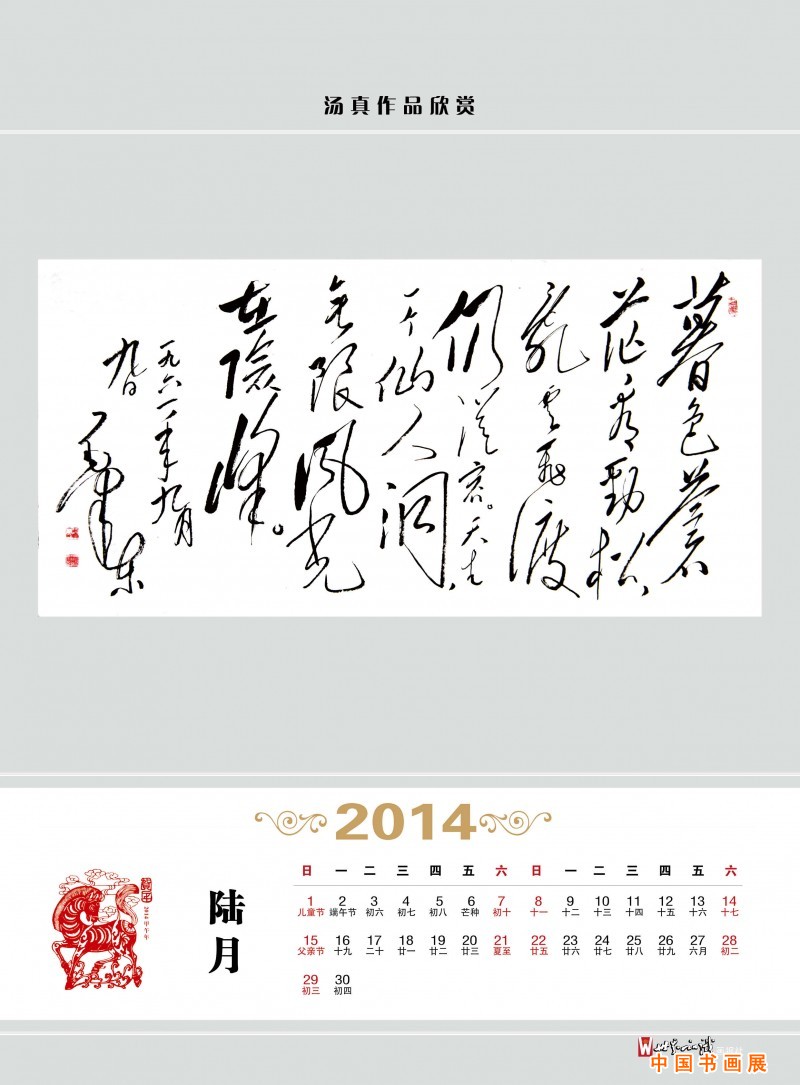 汤真作品欣赏
暮色蒼
茫看勁松,
亂雲飛渡
仍從容。天生
一个仙人洞,
无限風光
在險峰。
一九六一年九月
九日
毛泽东
2014
陆月
2014 甲午年
日 一 二 三 四 五 六 日 一 二 三 四 五 六
1 2 3 4 5 6 7 8 9 10 11 12 13 14
儿童节 端午节 初六 初七 初八 芒种 初十 十一 十二 十三 十四 十五 十六 十七
15 16 17 18 19 20 21 22 23 24 25 26 27 28
父亲节 十九 二十 廿一 廿二 廿三 夏至 廿五 廿六 廿七 廿八 廿九 六月 初二
29 30
初三 初四
中国书画展